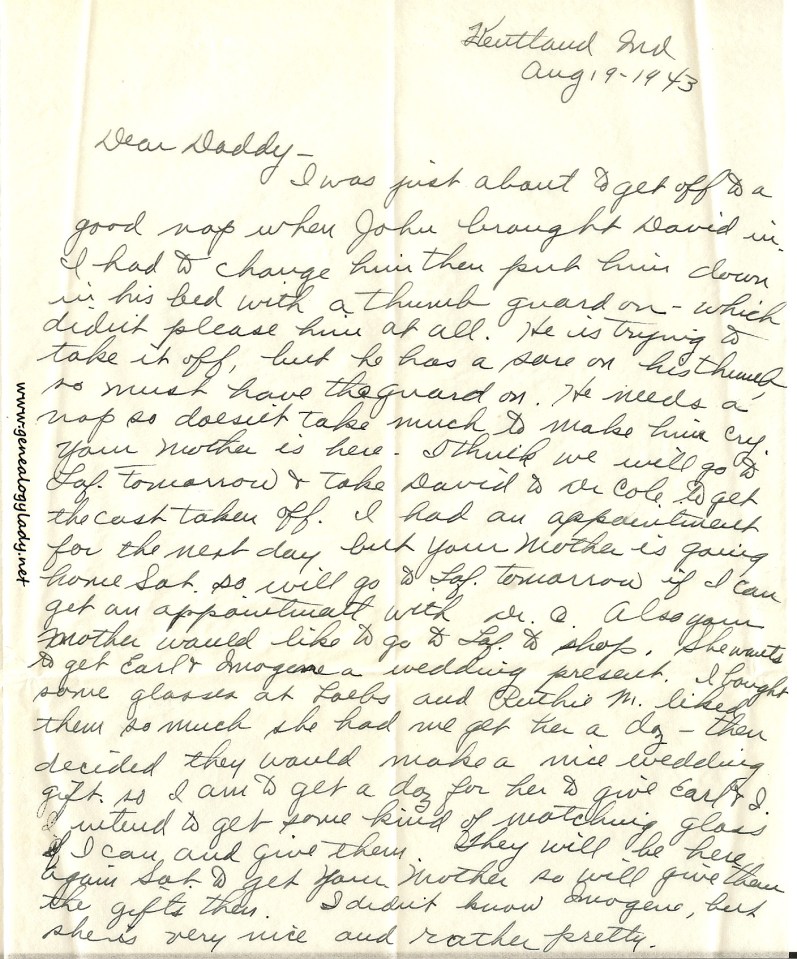 Kentland Ind
Aug 19-1943
Dear Daddy-
I was just about to get off to a
good nap when John brought David in.
I had to change him then put him down
in his bed with a thumb guard on - which
didn't please him at all. He is trying to
take it off, but he has a sore on his thumb,
so must have the guard on. He needs a
nap so doesn't take much to make him cry.
Your Mother is here. I think we will go to
Laf. tomorrow & take David to Dr Cole to get
the cast taken off. I had an appointment
for the next day but your Mother is going
home Sat. so will go to Laf. tomorrow if I can
get an appointment with Dr. C. Also your
Mother would like to go to Laf. to shop. She wants
to get Earl & Imogene a wedding present. I bought
some glasses at Loebs and Ruthie M. liked
them so much she had me get her a doz - then
decided they would make a nice wedding
gift. so I am to get a doz for her to give Earl & I.
I intend to get some kind of matching glass
if I can and give them. They will be here
again Sat. to get your Mother so will give them
the gifts then. I didn't know Imogene, but
she is very nice and rather pretty.
www.genealogylady.net